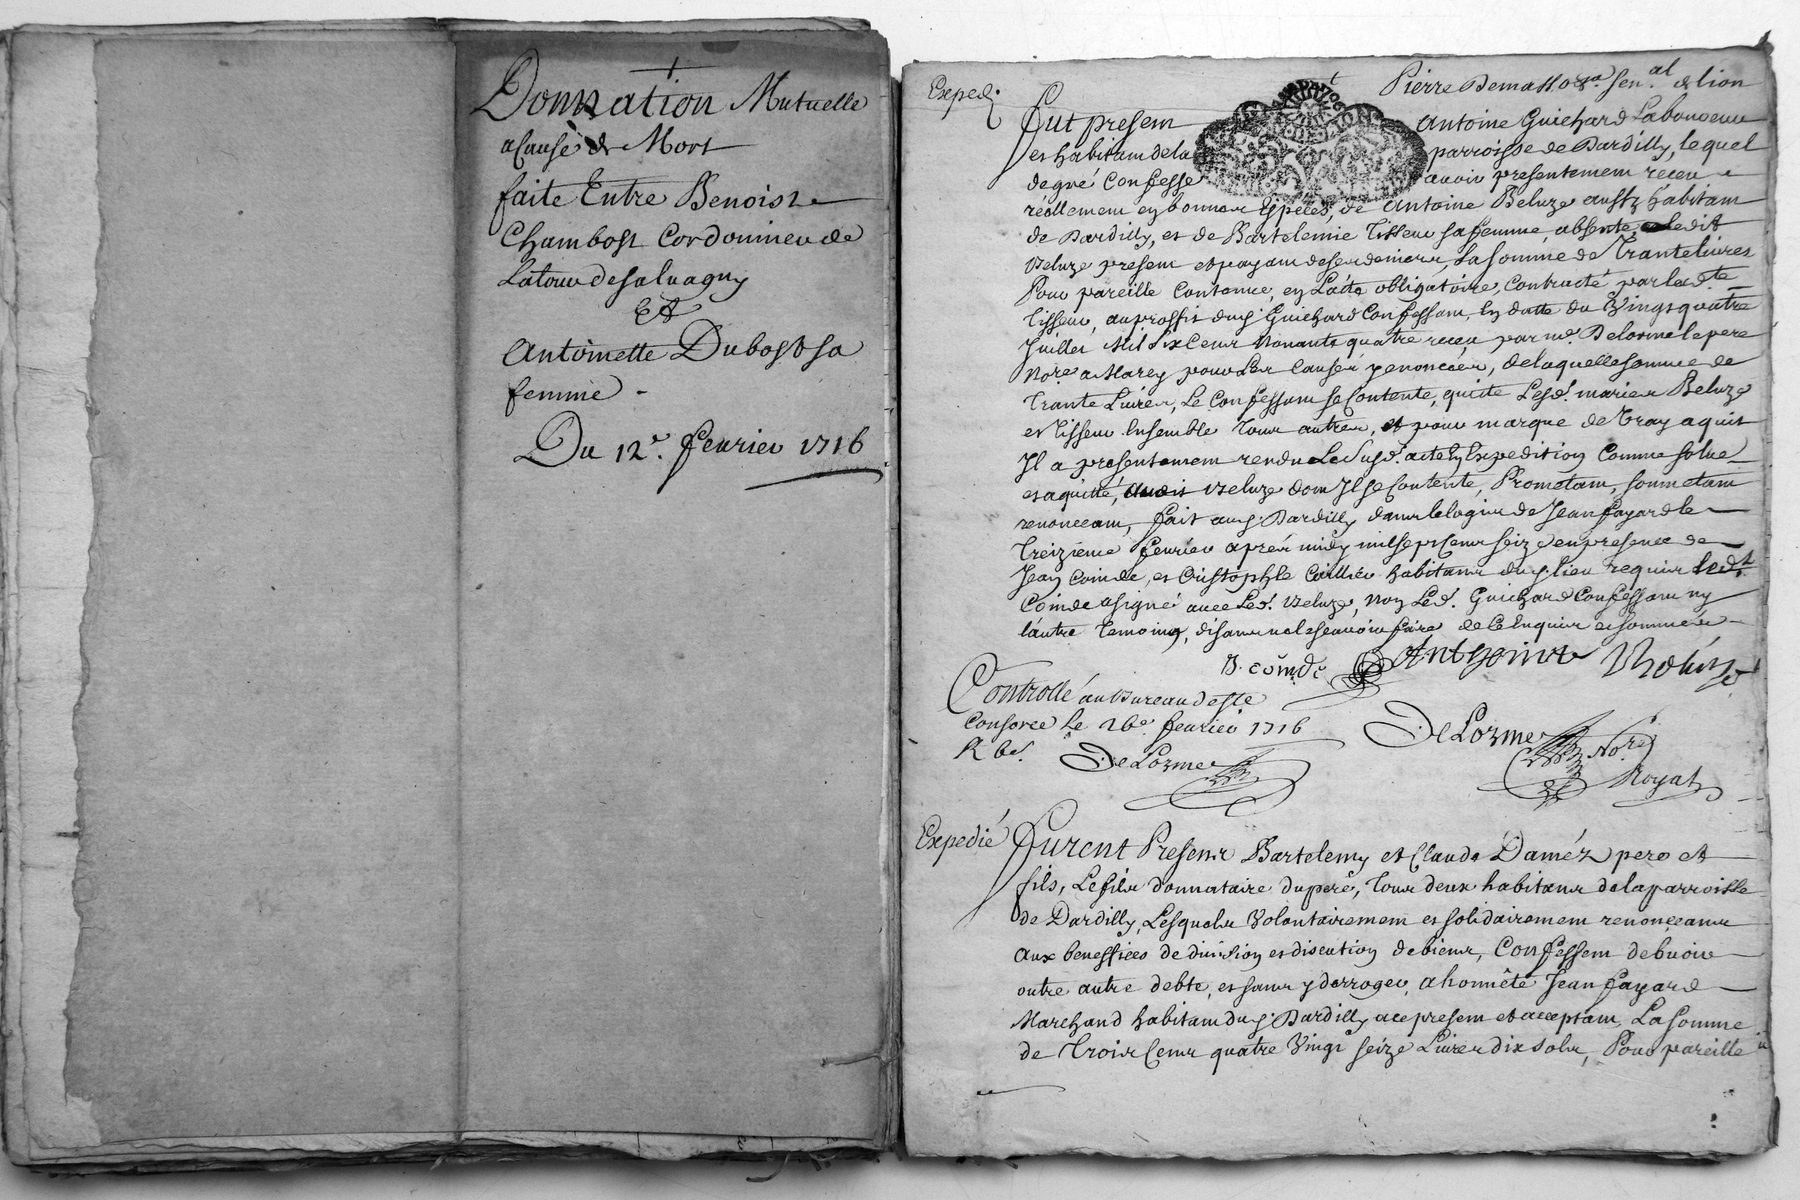 Donnation Mutuelle
a Cause de Mort
faite Entre Benoist
Chambost Cordonnier de
Latour de salvagny
Et
Antoinette Dubost sa
femme
Du 12e. feurier 1716
Expedié
Pierre Demasso sen.al de lion
Fut present Antoine Guichard Laboureur
et habitant de la parroisse de Dardilly, lequel
de gré Confesse auoir presentement receu
réellement en bonnes Espéces, de Antoine Beluze aussy habitant
de Dardilly, et de Bartelemie Tisseur sa femme, absente, ledit
Beluze present et payant de ses deniers, La somme de Trante liures
Pour pareille Contenue, en L'acte obligatoire, Contracté par lad.te
Tisseur, au proffit dud. Guichard Confessant, En datte du Vingt quatre
Juillet Mil Six Cent Nonante quatre receu par me. Delorme le pere
No.re a Marcy pour Les Causes y enoncées, de laquelle somme de
Trante Liures, Le Confessant se Contente, quitte Lesd. mariez Beluze
et Tisseur Ensemble Tous autres, et pour marque de Vray aquit
Il a presentement rendu Le Susd. acte En Expedition Comme solue
et aquitté, audit Beluze dont Il se Contente, Prometant, soumetant
renonceant, fait aud. Dardilly dans le logis de Jean fayard le
Treizieme feurier aprés midy mil sept Cent seize en presence de
Jean Coinde, et Cristophle habitants dud. lieu requis led.t
Coinde a signé auec Led. Beluze, Non Led. Guichard Confessant ny
l'autre Temoing, disants ne le scauoir faire de Ce Enquis et sommés
J. coinde Anthoinne Beluze
Controllé au Bureau de ste
Consorce le 26e feurier 1716
R 6s. DeLorme
DeLorme No.re
Royal
Expedié
Furent Presents Bartelemy et Claude Daméz pere et
fils, Le fils donnataire du peré, Tous deux habitants de la parroisse
de Dardilly, Lesquels Volontairement et solidairement renonçeants
aux beneffices de diuision et discution de biens, Confessent debuoir
outre autre debte, et sans y derroger, a honnête Jean fayard
Marchand habitant dud. Dardilly ace present et acceptant, La somme
de Trois Cents quatre Vingt seize Liures dix sols, Pour pareille